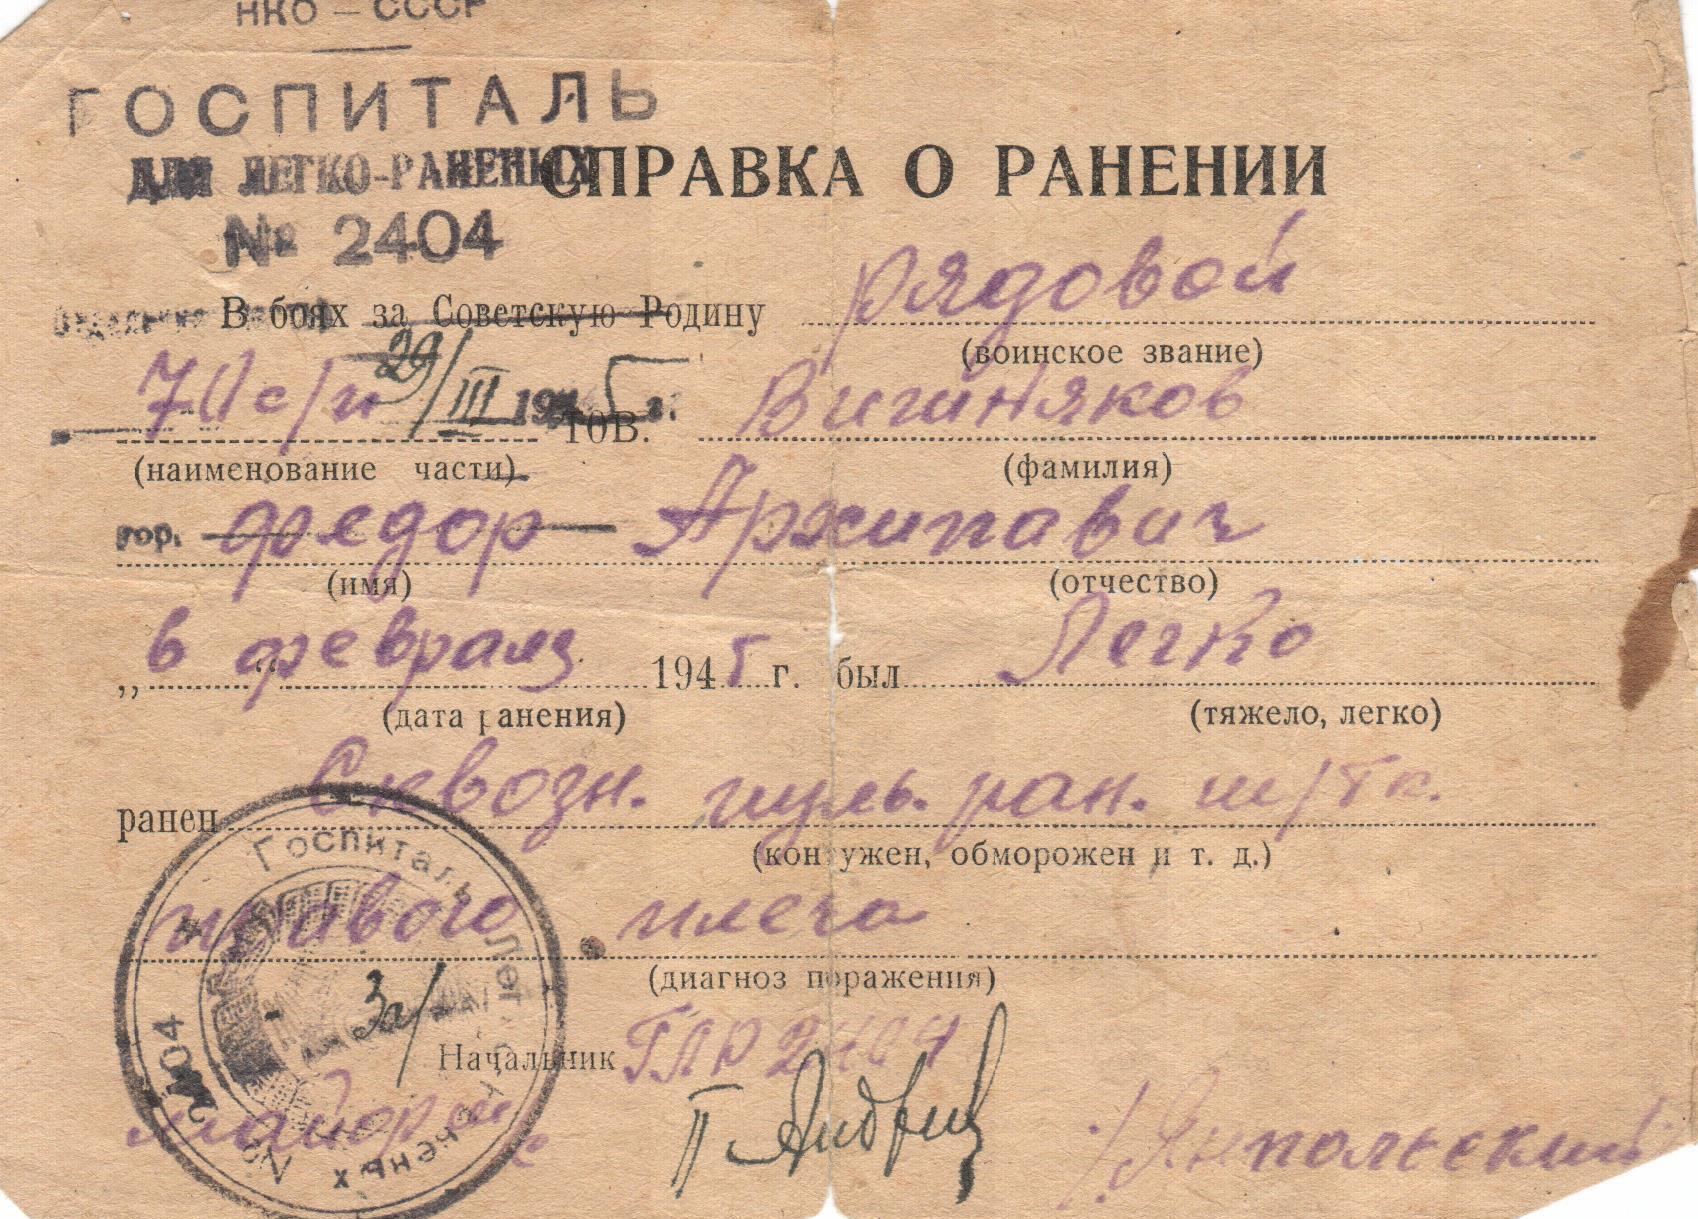 НКО – СССР
ГОСПИТАЛЬ
ДЛЯ ЛЕГКО-РАНЕНЫХ
№ 2404
СПРАВКА О РАНЕНИИ
В боях за Советскую Родину рядовой
(воинское звание)
29/III 1945 г.
тов. Вишняков
(наименование части) (фамилия)
гор. Федор Архипавич
(имя) (отчество)
„в“ феврале 1945 г. был Легко
(дата ранения) (тяжело, легко)
ранен Сквозн. пуль. ран. м/тк.
(контужен, обморожен и т. д.)
правого плеча
(диагноз поражения)
За/ Начальник ГЛР 2404
майор м/с /Ямпольский/
Госпиталь Легко Раненых № 2404